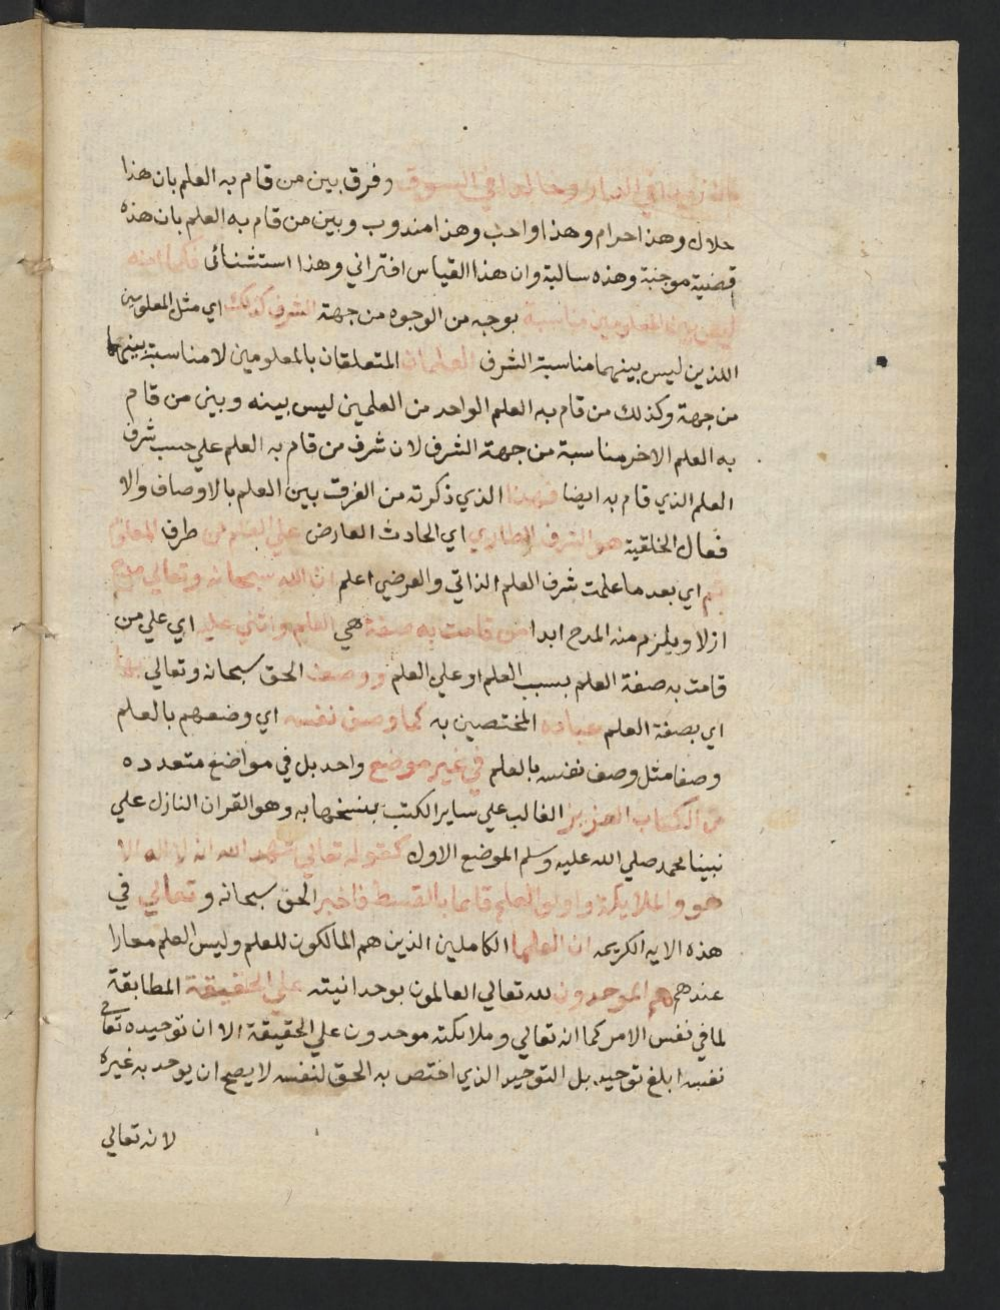 بان زيدا في الدار وخالدا في السوق وفرق بين من قام به العلم بان هذا
حلال وهذا حرام وهذا واجب وهذا مندوب وبين من قام به العلم بان هذه
قضية موجبة وهذه سالبة وان هذا القياس اقتراني وهذا استثنائى فكما انه
ليس بين المعلومين مناسبة بوجه من الوجوه من جهة الشرف كذلك اي مثل المعلومين
اللذين ليس بينهما مناسبة الشرف العلمان المتعلقان بالمعلومين لا مناسبة بينهما
من جهة وكذلك من قام به العلم الواحد من العلمين ليس بينه وبين من قام
به العلم الاخر مناسبة من جهة الشرف لان شرف من قام به العلم علي حسب شرف
العلم الذي قام به ايضا فهذا الذي ذكرته من الفرق بين العلم بالاوصاف والا
فعال الخلقية هو الشرف الطاري اي الحادث العارض علي العلم من طرف المعلوم
ثم اي بعد ما علمت شرف العلم الذاتي والعرضي اعلم ان الله سبحانه وتعالي مدح
ازلا ويلزم منه المدح ابدا من قامت به صفة هي العلم واثني عليه اي علي من
قامت به صفة العلم بسبب العلم او علي العلم ووصف الحق سبحانه وتعالي بها
اي بصفة العلم عباده المختصين به كما وصف نفسه اي وصفهم بالعلم
وصفا مثل وصف نفسه بالعلم في غير موضع واحد بل في مواضع متعدده
من الكتاب العزيز الغالب علي ساير الكتب بنسخها به وهو القران النازل علي
نبينا محمد صلي الله عليه وسلم الموضع الاول كقوله تعالي شهد الله انه لا اله الا
هو والملايكة واولو العلم قايما بالقسط فاخبر الحق سبحانه وتعالي في
هذه الايه الكريمه ان العلما الكاملين الذين هم المالكون للعلم وليس العلم معارا
عندهم هم الموحدون لله تعالي العالمون بوحدانيته علي الحقيقة المطابقة
لما في نفس الامر كما انه تعالي وملائكته موحدون علي الحقيقة الا ان توحيده تعالى
نفسه ابلغ توحيد بل التوحيد الذي اختص به الحق لنفسه لا يصح ان يوحد به غيره
لانه تعالي